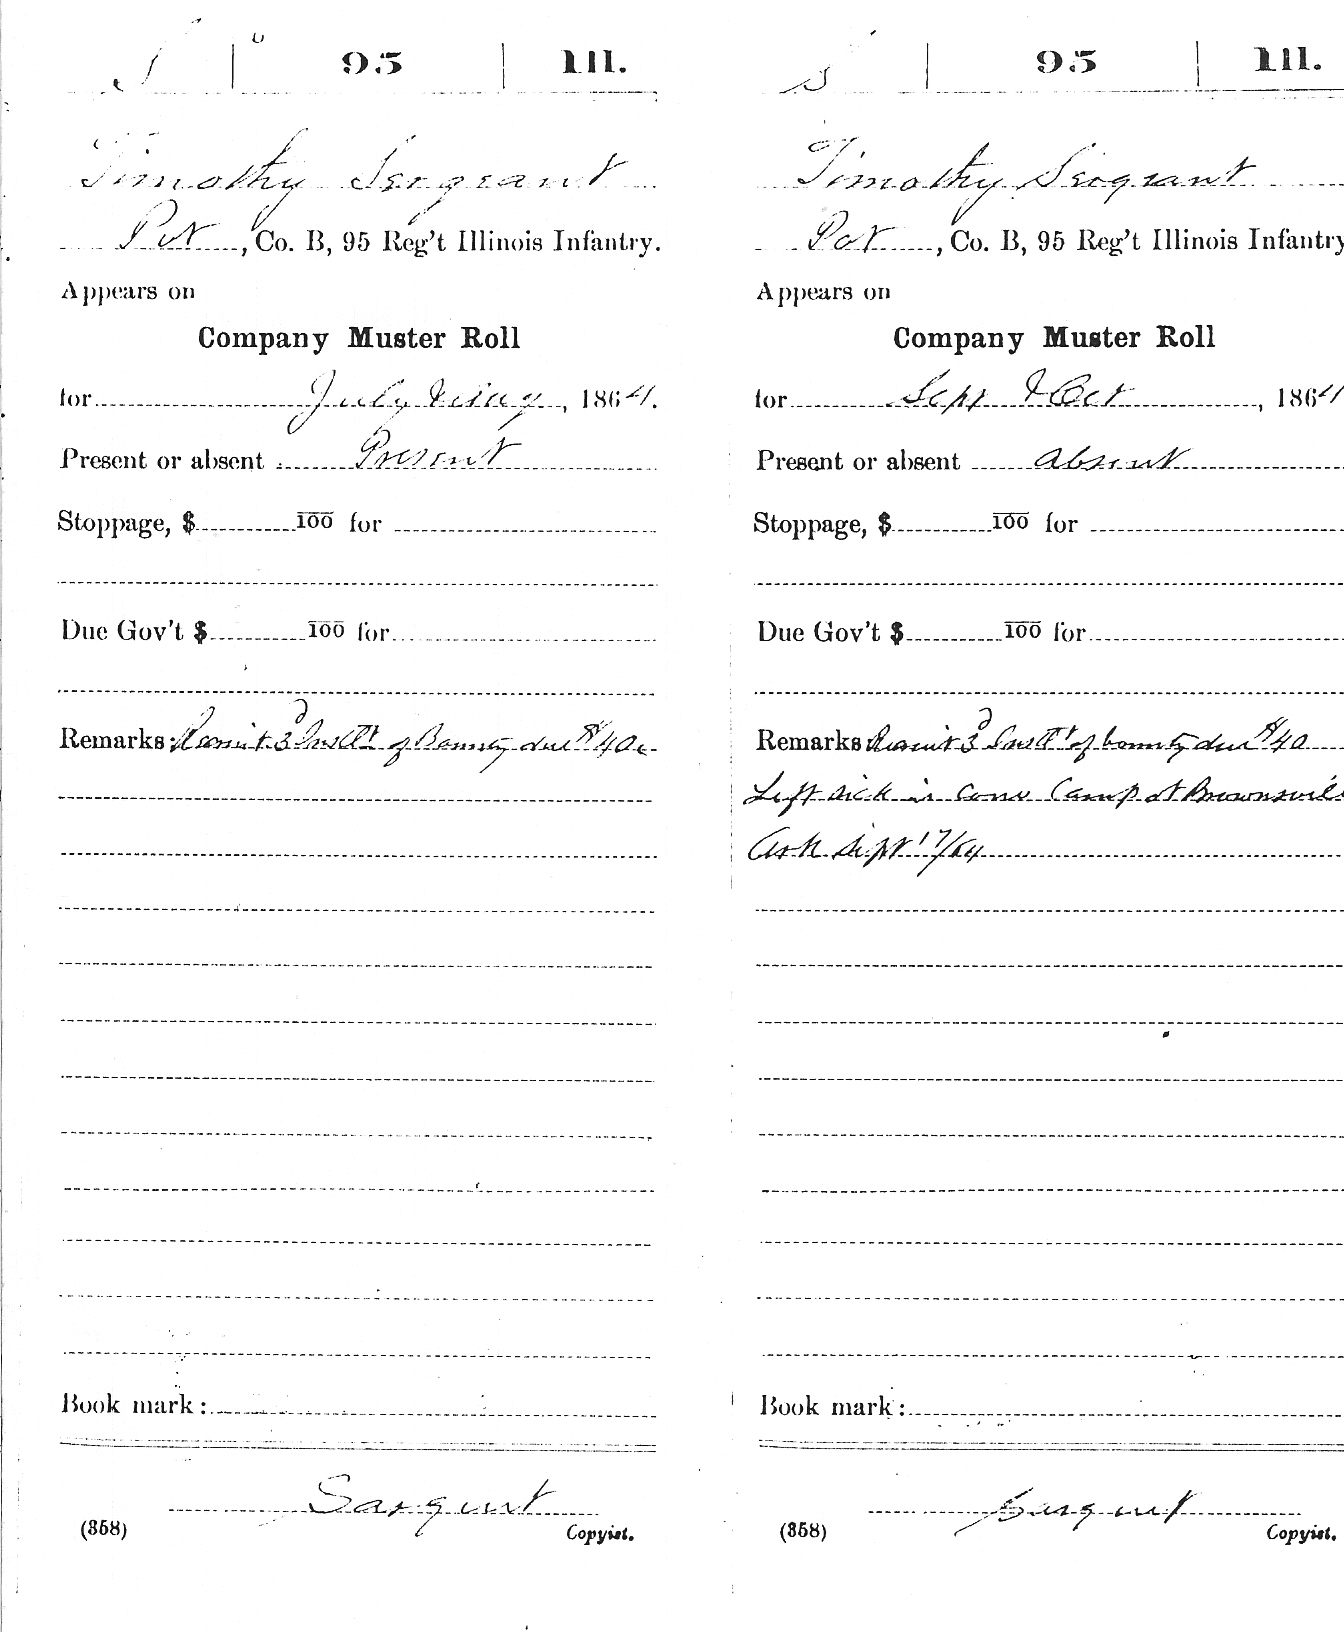 S | 95 | Ill.
Timothy Sergeant
Pvt, Co. B, 95 Reg't Illinois Infantry.
Appears on
Company Muster Roll
for July & Aug, 1864.
Present or absent Present
Stoppage, $ 100 for
Due Gov't $ 100 for
Remarks: Recruit 3d Instlt of Bounty due $40
Book mark:
Sargent
(358) Copyist.
S | 95 | Ill.
Timothy Sergeant
Pvt, Co. B, 95 Reg't Illinois Infantry
Appears on
Company Muster Roll
for Sept & Oct, 1864
Present or absent Absent
Stoppage, $ 100 for
Due Gov't $ 100 for
Remarks Recruit 3d Instlt of bounty due $40
Left sick in Camp at Brownsville
Ark Sept 17/64
Book mark:
Sargent
(358) Copyist.